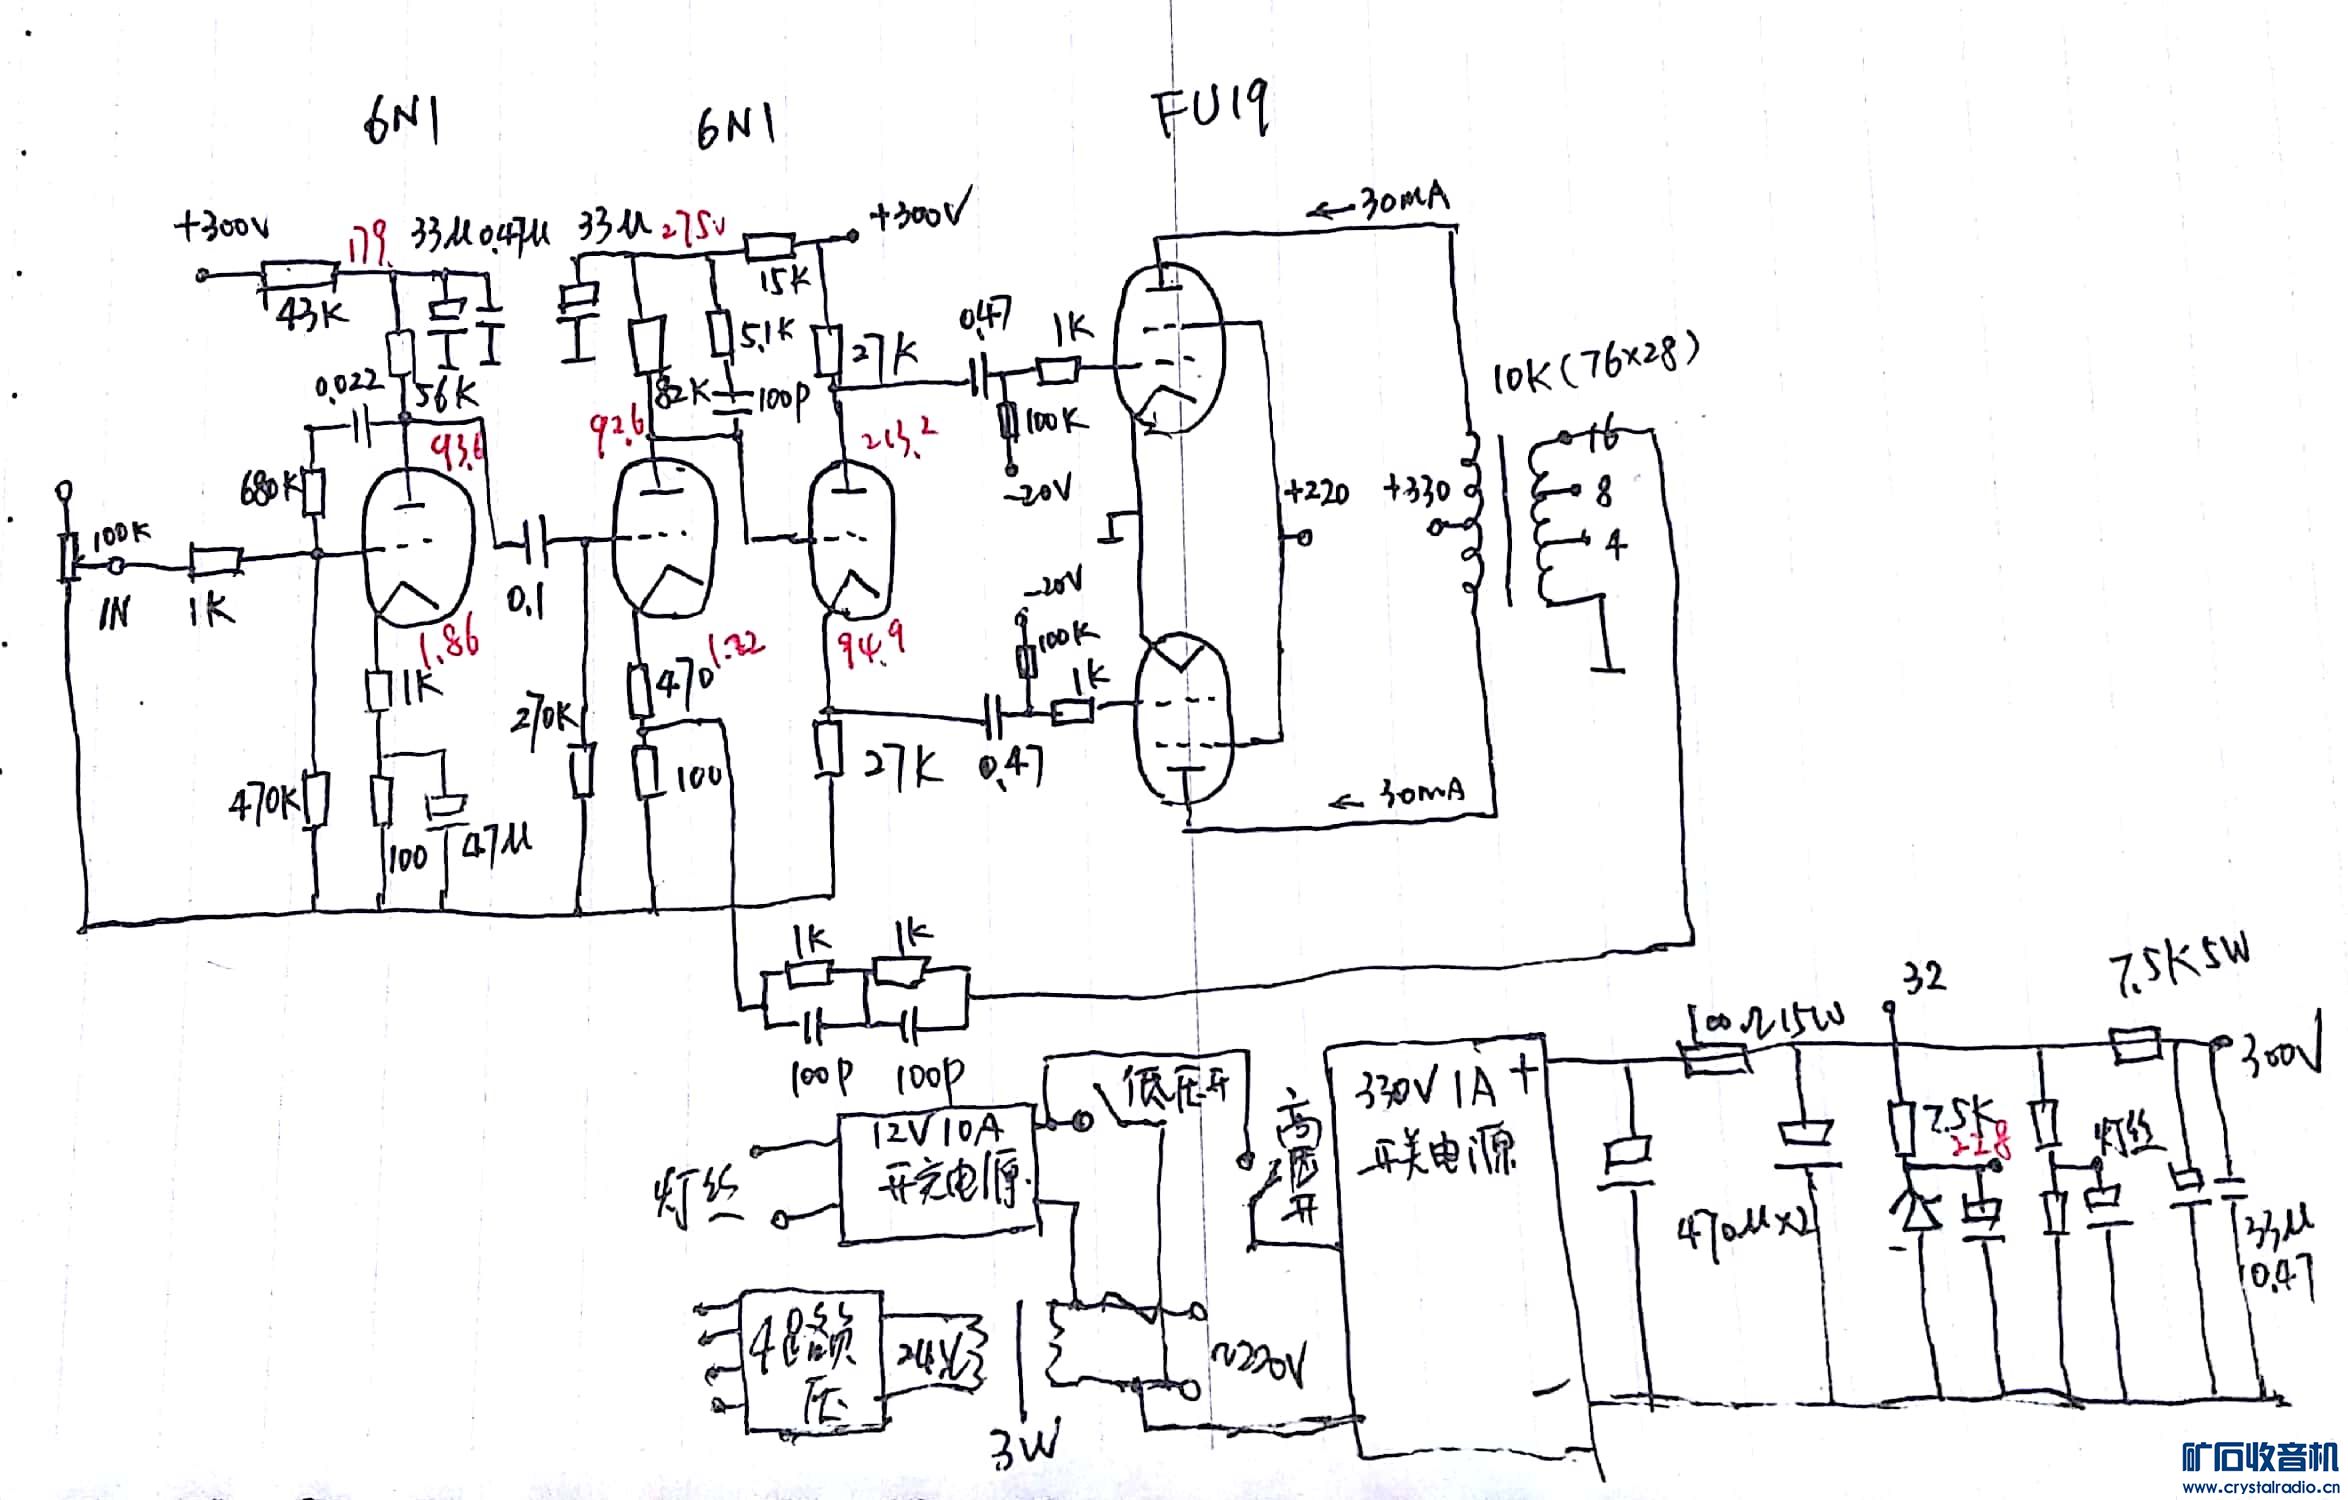 6N1
6N1
FU19
+300V
179
33μ 0.47μ
33μ
275V
+300V
30mA
43K
15K
0.022
56K
82K
5.1K
100P
27K
0.47
1K
10K(76×28)
93.6
92.6
213.2
100K
-20V
680K
100K
IN
1K
0.1
+220
+330
16
8
4
1.86
1.22
94.9
-20V
100K
1K
1K
470
270K
470K
100
47μ
100
27K
0.47
30mA
1K
1K
100P
100P
低压开
高压开
12V10A
开关电源
灯丝
330V 1A +
开关电源
100Ω15W
7.5K5W
300V
7.5K
228
灯丝
470μ×2
33μ
0.47
24V
3W
~220V
矿石收音机
www.crystalradio.cn